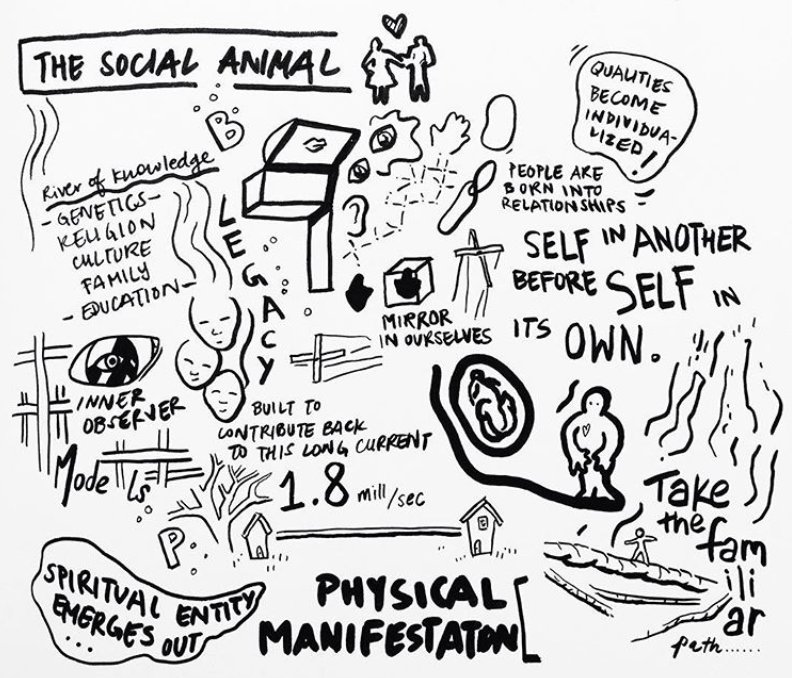 THE SOCIAL ANIMAL
QUALITIES
BECOME
INDIVIDUA-
LIZED!
B
River of knowledge
- GENETICS -
RELIGION
CULTURE
FAMILY
- EDUCATION -
LEGACY
PEOPLE ARE
BORN INTO
RELATIONSHIPS
SELF IN ANOTHER
BEFORE SELF IN
ITS OWN.
MIRROR
IN OURSELVES
INNER
OBSERVER
BUILT TO
CONTRIBUTE BACK
TO THIS LONG CURRENT
Models
1.8 mill/sec
P.
Take
the fam
ili
ar
path......
SPIRITUAL ENTITY
EMERGES OUT
...
PHYSICAL
MANIFESTATON